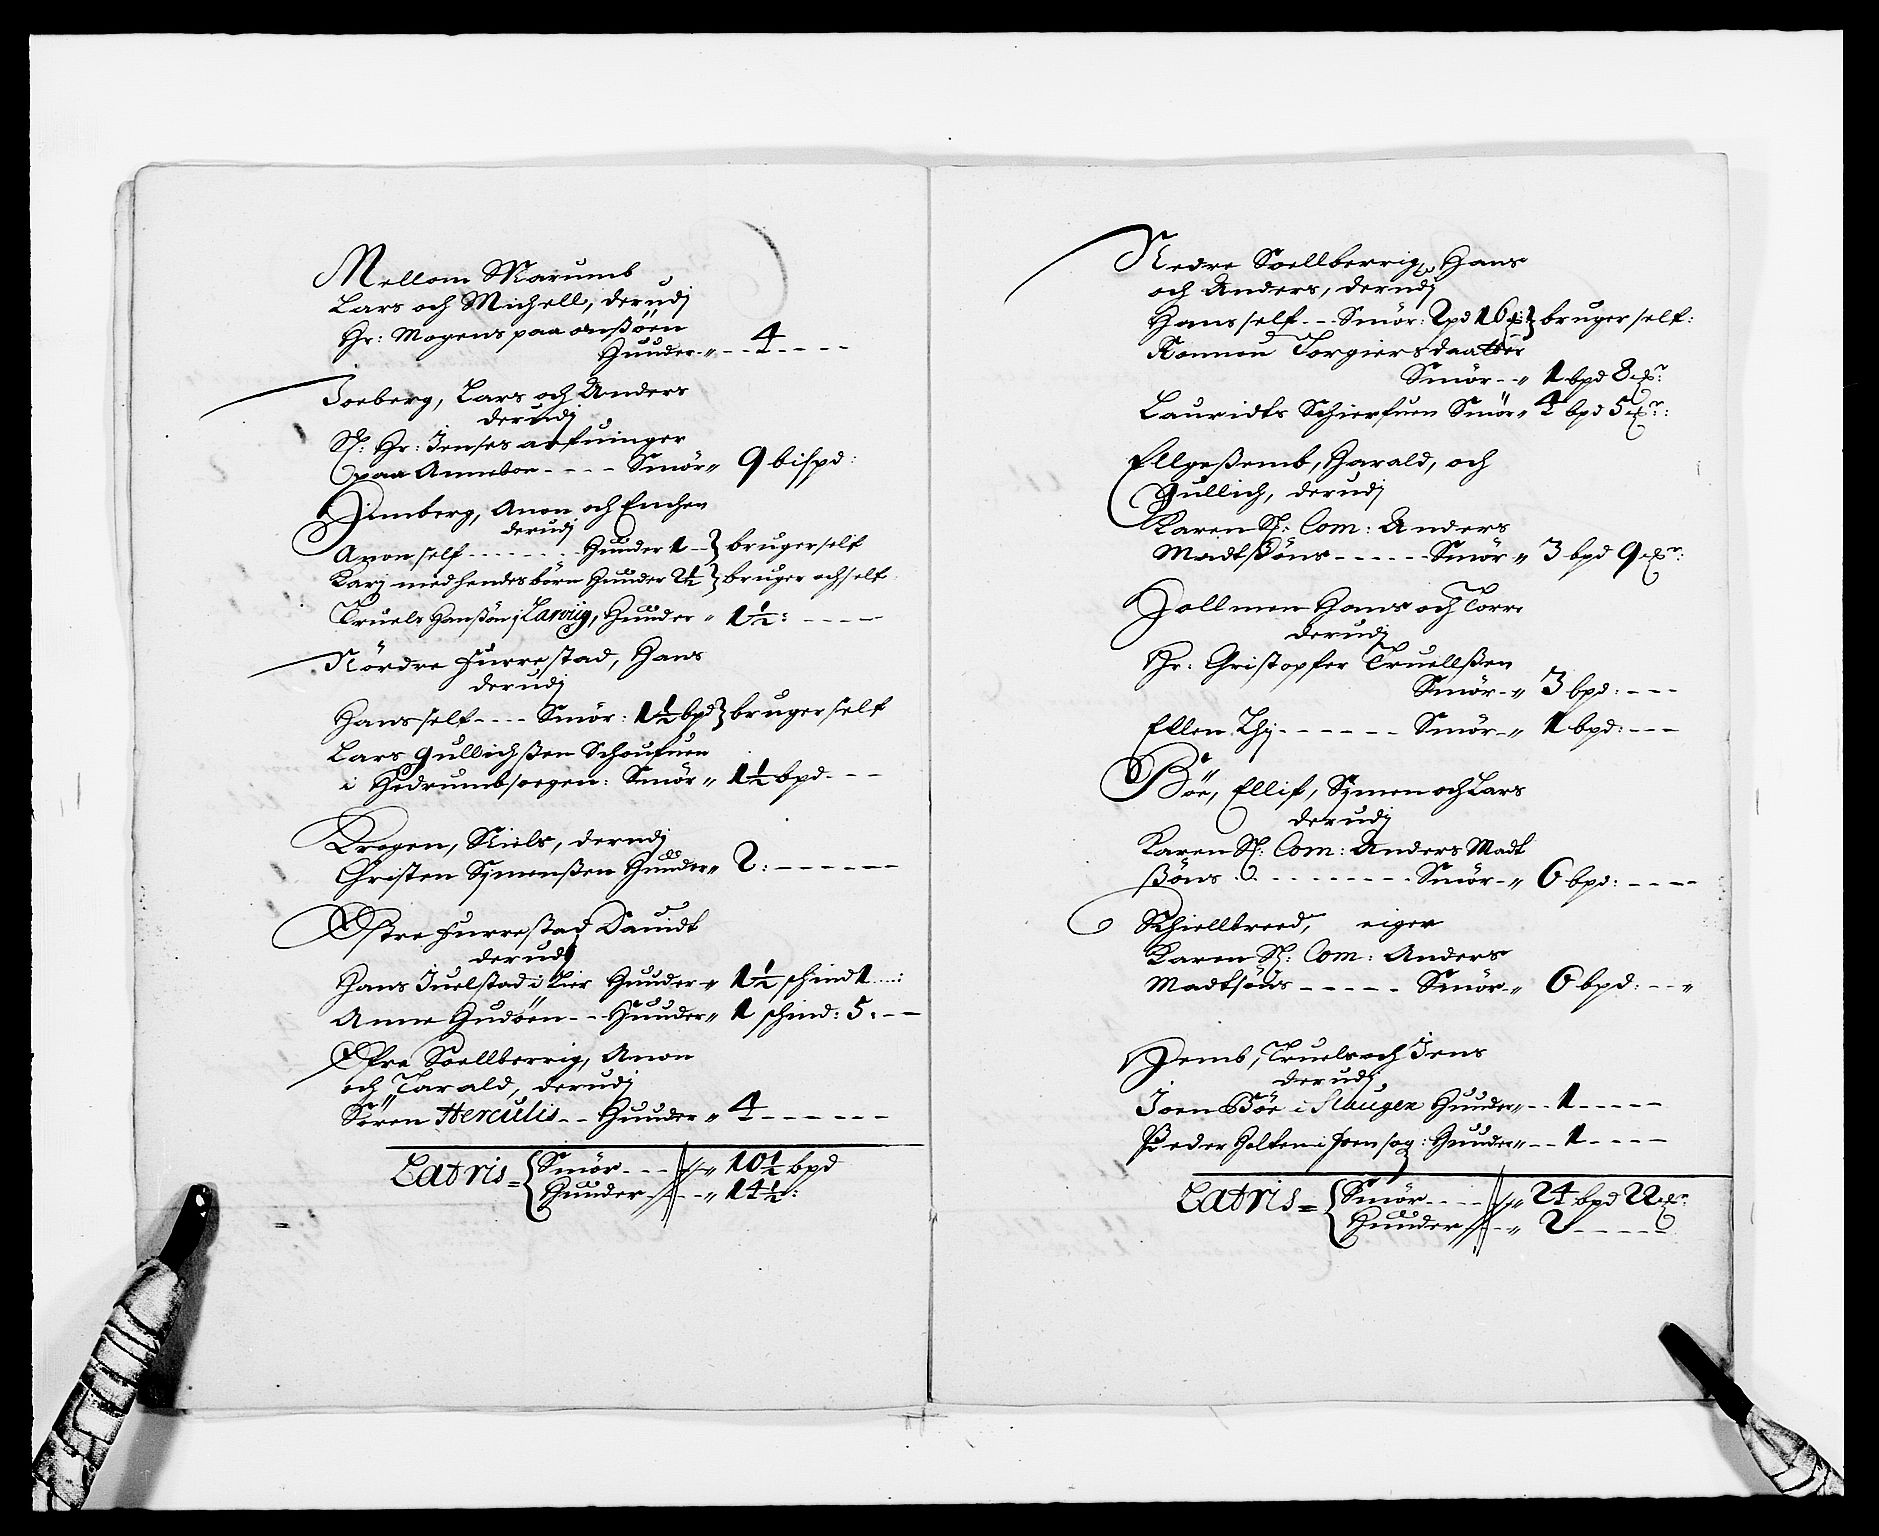 Mellom Marumb
Lars och Michell, derudj
Hr: Mogens paa onßöen
Huuder „ 4
Joeberg, Lars och Anders
derudj
Sl: Hr: Jenses arfuinger
paa Anneboe - - - - Smör „ 9 bispd:
Himberg, Anon och Enchen
derudj
Anon self - - - - Huuder 1 } bruger self
Karj med hendes börn Huuder 2½ } bruger och self
Truels Hanßön i Larvüg, Huuder „ 1½:
Nördre Furrestad, Hans
derudj
Hans self - - - - Smör: 1½ bpd } bruger self
Lars Gullichßen Schoufuen
i Hedrumbsoegen: Smör „ 1½ bpd
Krogen, Niels, derudj
Christen Sÿmenßen Huuder „ 2:
Østre Furrestad Dauidt
derudj
Hans Juelstad i Lier Huuder „ 1½ schindt
Anne Gudöen - - Huuder „ 1 schind: 5:
Øfre Soellberrig, Anon
och Tarald, derudj
Sören Herculis - - Huuder „ 4
Latris = { Smör - - - „ 10½ bpd
Huuder - - „ 14½:
Nedre Soellberrig, Hans
och Anders, derudj
Hans self - - Smör: 2 pd 16 } bruger self:
Ronnou Torgiersdaatter
Smör - - „ 1 bpd 8
Lauridts Schierfuen Smör „ 4 bpd 5
Ellgeßemb, Harald, och
Gullich, derudj
Karen Sl: Com: Anders
Madtßöns - - - - - Smör „ 3 bpd 9
Hollmen Hans och Torre
derudj
Hr: Christopfer Truellßen
Smör - „ 3 bpd:
Ellen Thj - - - - - Smör - „ 1 bpd:
Böe, Ellif, Sÿmen och Lars
derudj
Karen Sl: Com: Anders Madt
ßöns - - - - - Smör - „ 6 bpd:
Schiellbreed, eiger
Karen Sl: Com: Anders
Madtsöns - - - - - Smör - „ 6 bpd:
Hemb, Truels och Jens
derudj
Joen Böe i Slaugen Huuder „ - 1
Peder Holten i sog: Huuder „ - 1
Latris = { Smör - - - „ 24 bpd 22
Huuder - - „ 2